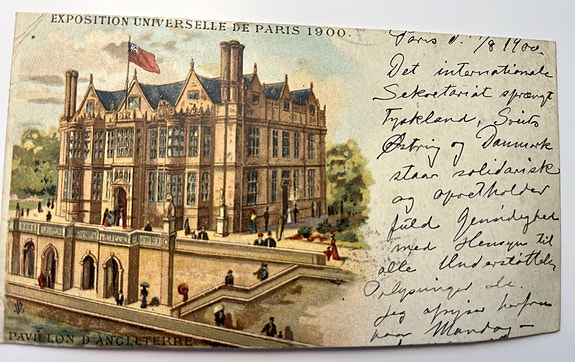 EXPOSITION UNIVERSELLE DE PARIS 1900.
Paris d. 1/8 1900.
Det internationale
Sekretariat sprængt
Tyskland, Sveits
Østrig og Danmark
staar solidarisk
og opretholder
fuld Gensidighed
med Hensyn til
alle Understöttels
Oplysninger etc.
Jeg afrejser herfra
paa Mandag
PAVILLON D'ANGLETERRE